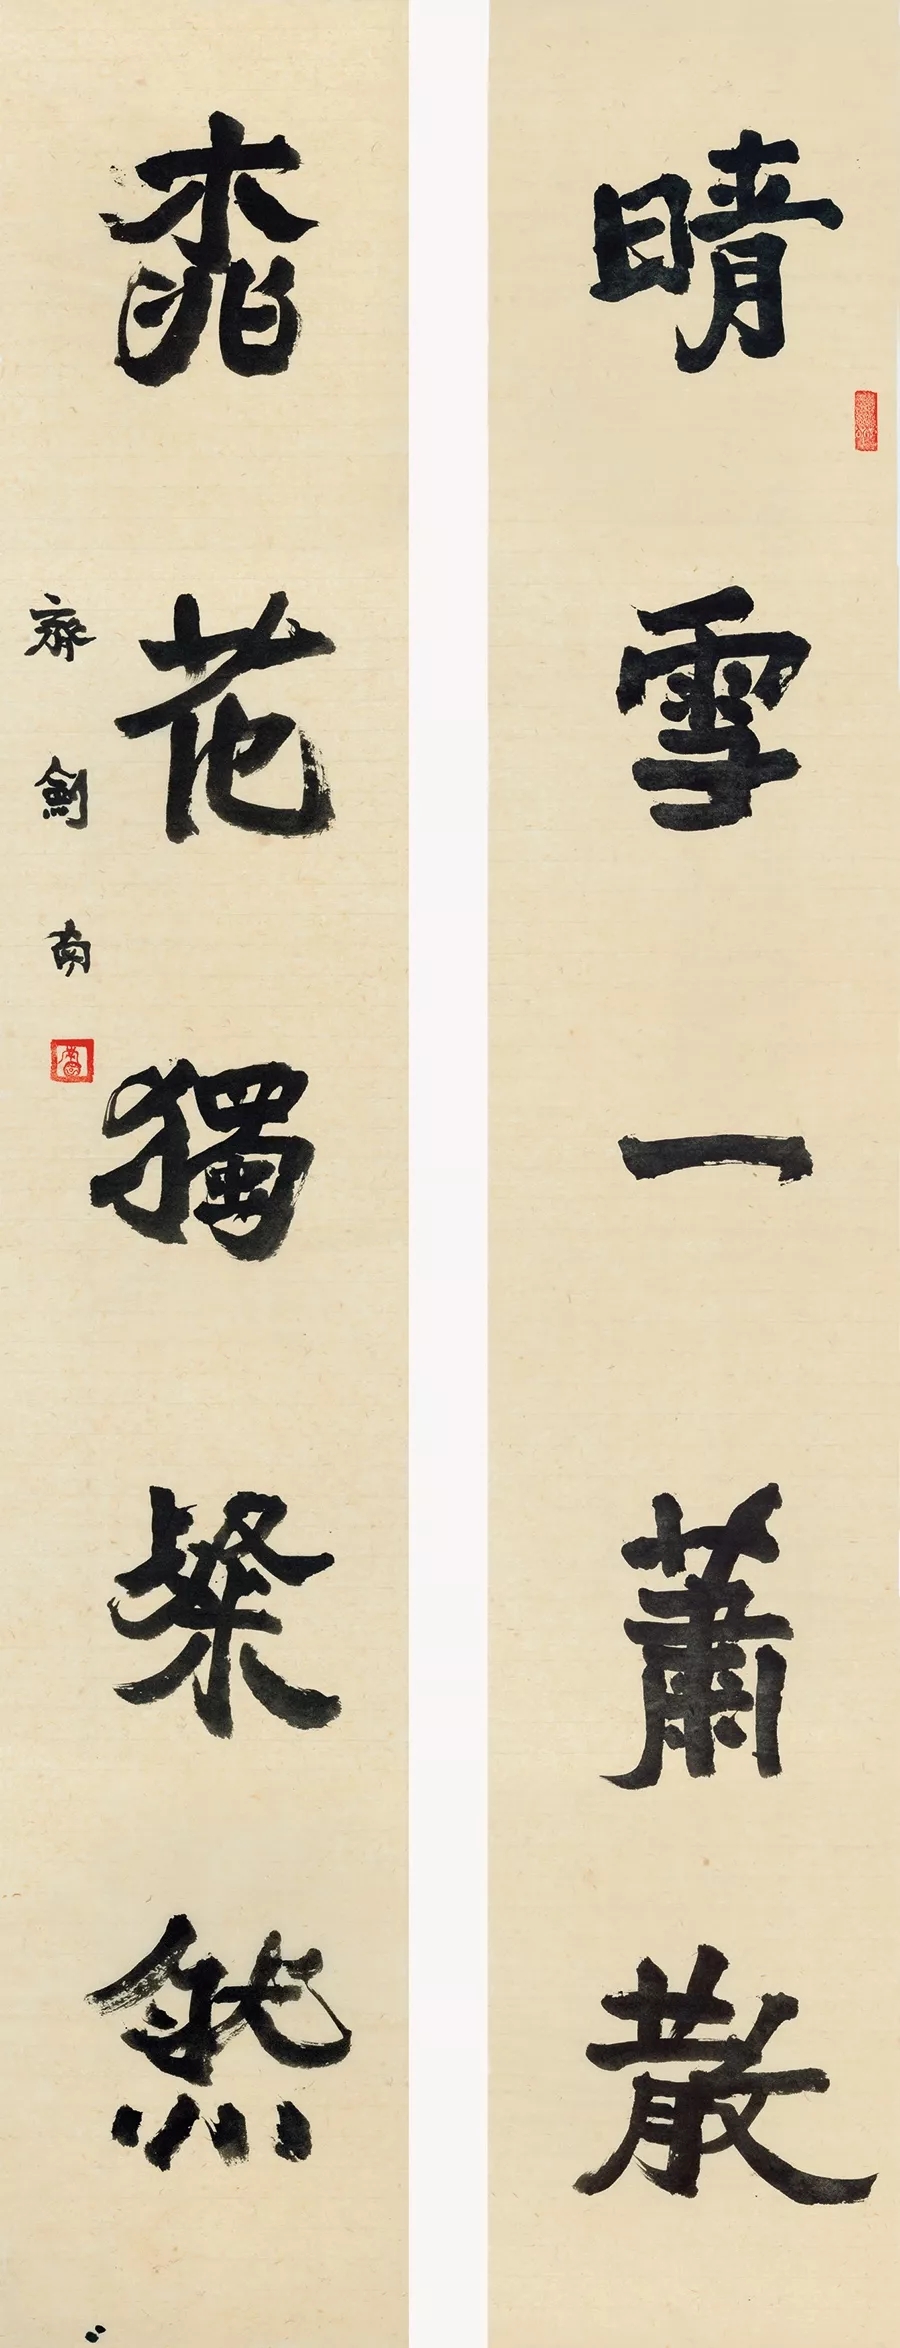 晴雪一蕭散
桃花獨粲然
齊劍南